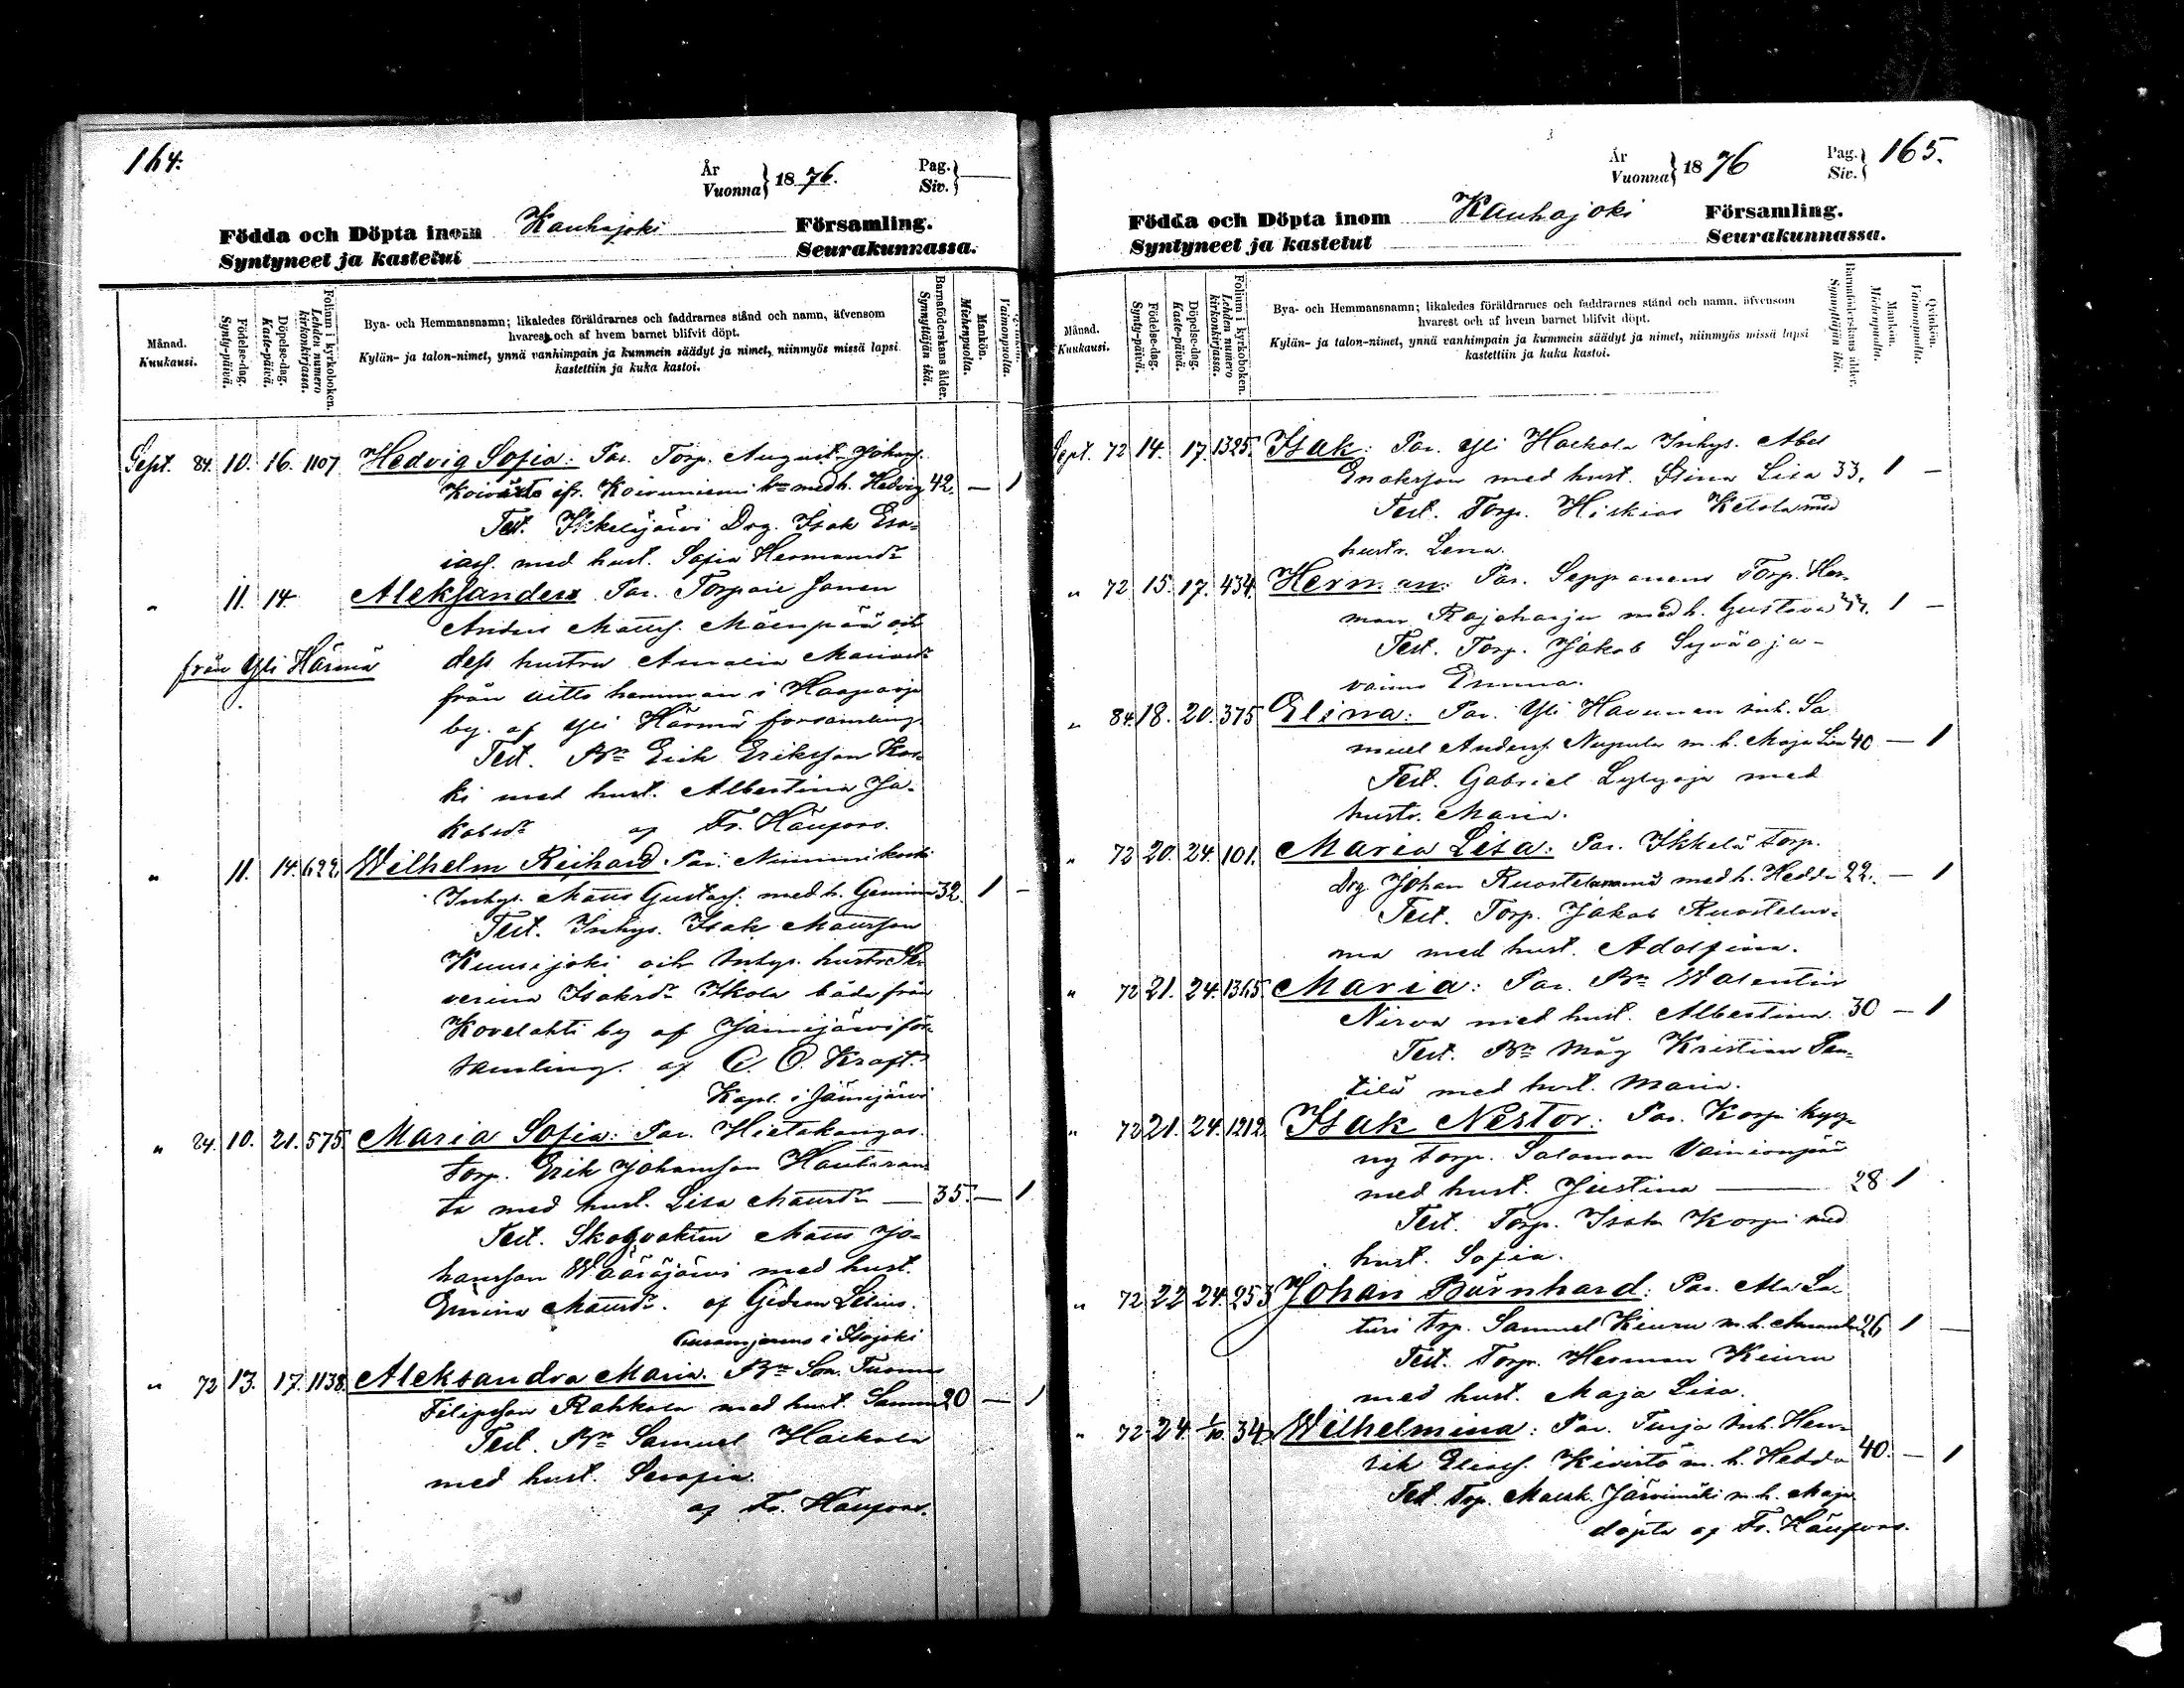 164.
År
Vuonna } 1876.
Pag.
Siv. }
Födda och Döpta inom Kauhajoki Församling.
Syntyneet ja kastetut Seurakunnassa.
Månad.
Kuukausi.
Födelse-dag.
Synty-päivä.
Döpelse-dag.
Kaste-päivä.
Folium i kyrkoboken.
Lehden numero kirkonkirjassa.
Bya- och Hemmansnamn; likaledes föräldrarnes och faddrarnes stånd och namn, äfvensom
hvarest och af hvem barnet blifvit döpt.
Kylän- ja talon-nimet, ynnä vanhimpain ja kummein säädyt ja nimet, niinmyös missä lapsi
kastettiin ja kuka kastoi.
Barnaföderskans ålder.
Synnyttäjän ikä.
Mankön.
Miehenpuolta.
Qvinkön.
Vaimonpuolta.
Sept. 84. 10. 16. 1107 Hedvig Sofia: Par. Torp. August Johans.
Koivisto ifr. Koivuniemi med h. Hedvig 42. — 1
Test. Ikkeläjärvi Drg. Isak Esa-
iass. med hust. Sofia Hermansdr
" 11. 14. Aleksander Par. Torpare sonen
Anders Matts. Mäenpää och
från Yli Härmä dess hustru Amalia Mariasdr
från hemman i Haapoja
by. af Yli Härmä församling.
Test. Bn Erik Eriksson Kos-
ki med hust. Albertina Ja-
kobsdr af Fr. Härfors.
" 11. 14. 622 Wilhelm Reihard. Par. Nummikoski
Inhys. Matts Gustafs. med h. Gemina 32. 1 —
Test. Inhys. Isak Mattsson
Kuusijoki och Inhys. hustru Se-
verina Isaksdr Ikola båda från
Kovelahti by af Jämijärvi för-
samling. af C. O. Kraft.
Kapl. i Jämijärvi
" 84. 10. 21. 575. Maria Sofia: Par. Hietakangas.
torp. Erik Johansson Hautaran-
ta med hust. Lisa Mattsdr — 35. — 1
Test. Skogvaktare Matts Jo-
hansson Wääräjärvi med hust.
Emina Mattsdr. af Gideon
i Isojoki
" 72 13. 17. 1138. Aleksandra Maria. Bn Son. Tuomas
Filipsson Rahkola med hust. Sanna 20 — 1
Test. Bn Samuel Hackola
med hust. Serafia.
af Fr. Härfors.
År
Vuonna } 1876
Pag.
Siv. } 165.
Födda och Döpta inom Kauhajoki Församling.
Syntyneet ja kastetut Seurakunnassa.
Månad.
Kuukausi.
Födelse-dag.
Synty-päivä.
Döpelse-dag.
Kaste-päivä.
Folium i kyrkoboken.
Lehden numero kirkonkirjassa.
Bya- och Hemmansnamn; likaledes föräldrarnes och faddrarnes stånd och namn, äfvensom
hvarest och af hvem barnet blifvit döpt.
Kylän- ja talon-nimet, ynnä vanhimpain ja kummein säädyt ja nimet, niinmyös missä lapsi
kastettiin ja kuka kastoi.
Barnaföderskans ålder.
Synnyttäjän ikä.
Mankön.
Miehenpuolta.
Qvinkön.
Vaimonpuolta.
Sept. 72 14. 17. 1325. Isak: Par. Yli Hackola Inhys. Abel
Enoksson med hust. Stina Lisa 33. 1 —
Test. Torp. Hiskias Ketola med
hustr. Lena.
" 72 15. 17. 434. Herman. Par. Seppänens Torp. Her-
man Rajaharju med h. Gustava 44. 1 —
Test. Torp. Jakob Syväoja
vaimo Emma.
" 84. 18. 20. 375 Elina: Par. Yli Havunen inh. Sa
muel Anders. Nupula m. h. Maja Lisa 40 — 1
Test. Gabriel Lylyoja med
hustr. Maria.
" 72 20. 24. 101. Maria Lisa: Par. Ikkelä torp.
Drg Johan Ruostelanmä med h. Hedda 22. — 1
Test. Torp. Jakob Ruostelan-
ma med hust. Adolfina.
" 72 21. 24. 1365. Maria: Par. Bn Walentin
Nirva med hust. Albertina 30 — 1
Test. Bn Måg Kristian Pen-
tilä med hust. Maria.
" 72 21. 24. 1212. Isak Nestor: Par. Korpi kyyn-
ny torp. Salomon Vainionpää
med hust. Justina — 28 1
Test. Torp. Isak Korpi med
hust. Sofia.
" 72 22 24. 253 Johan Bärnhard: Par. Ala Lu-
turi trp. Samuel Keuru m. h. Amanda 26 1 —
Test. Torp. Herman Keuru
med hust. Maja Lisa.
" 72 24. 1/10. 34 Wilhelmina: Par. Turja Inh. Hen-
rik Eliass. Kivistö m. h. Hedda 40. — 1
Test. Trp. Maek. Järvimäki m. h. Maja
döpta af Fr. Härfors.